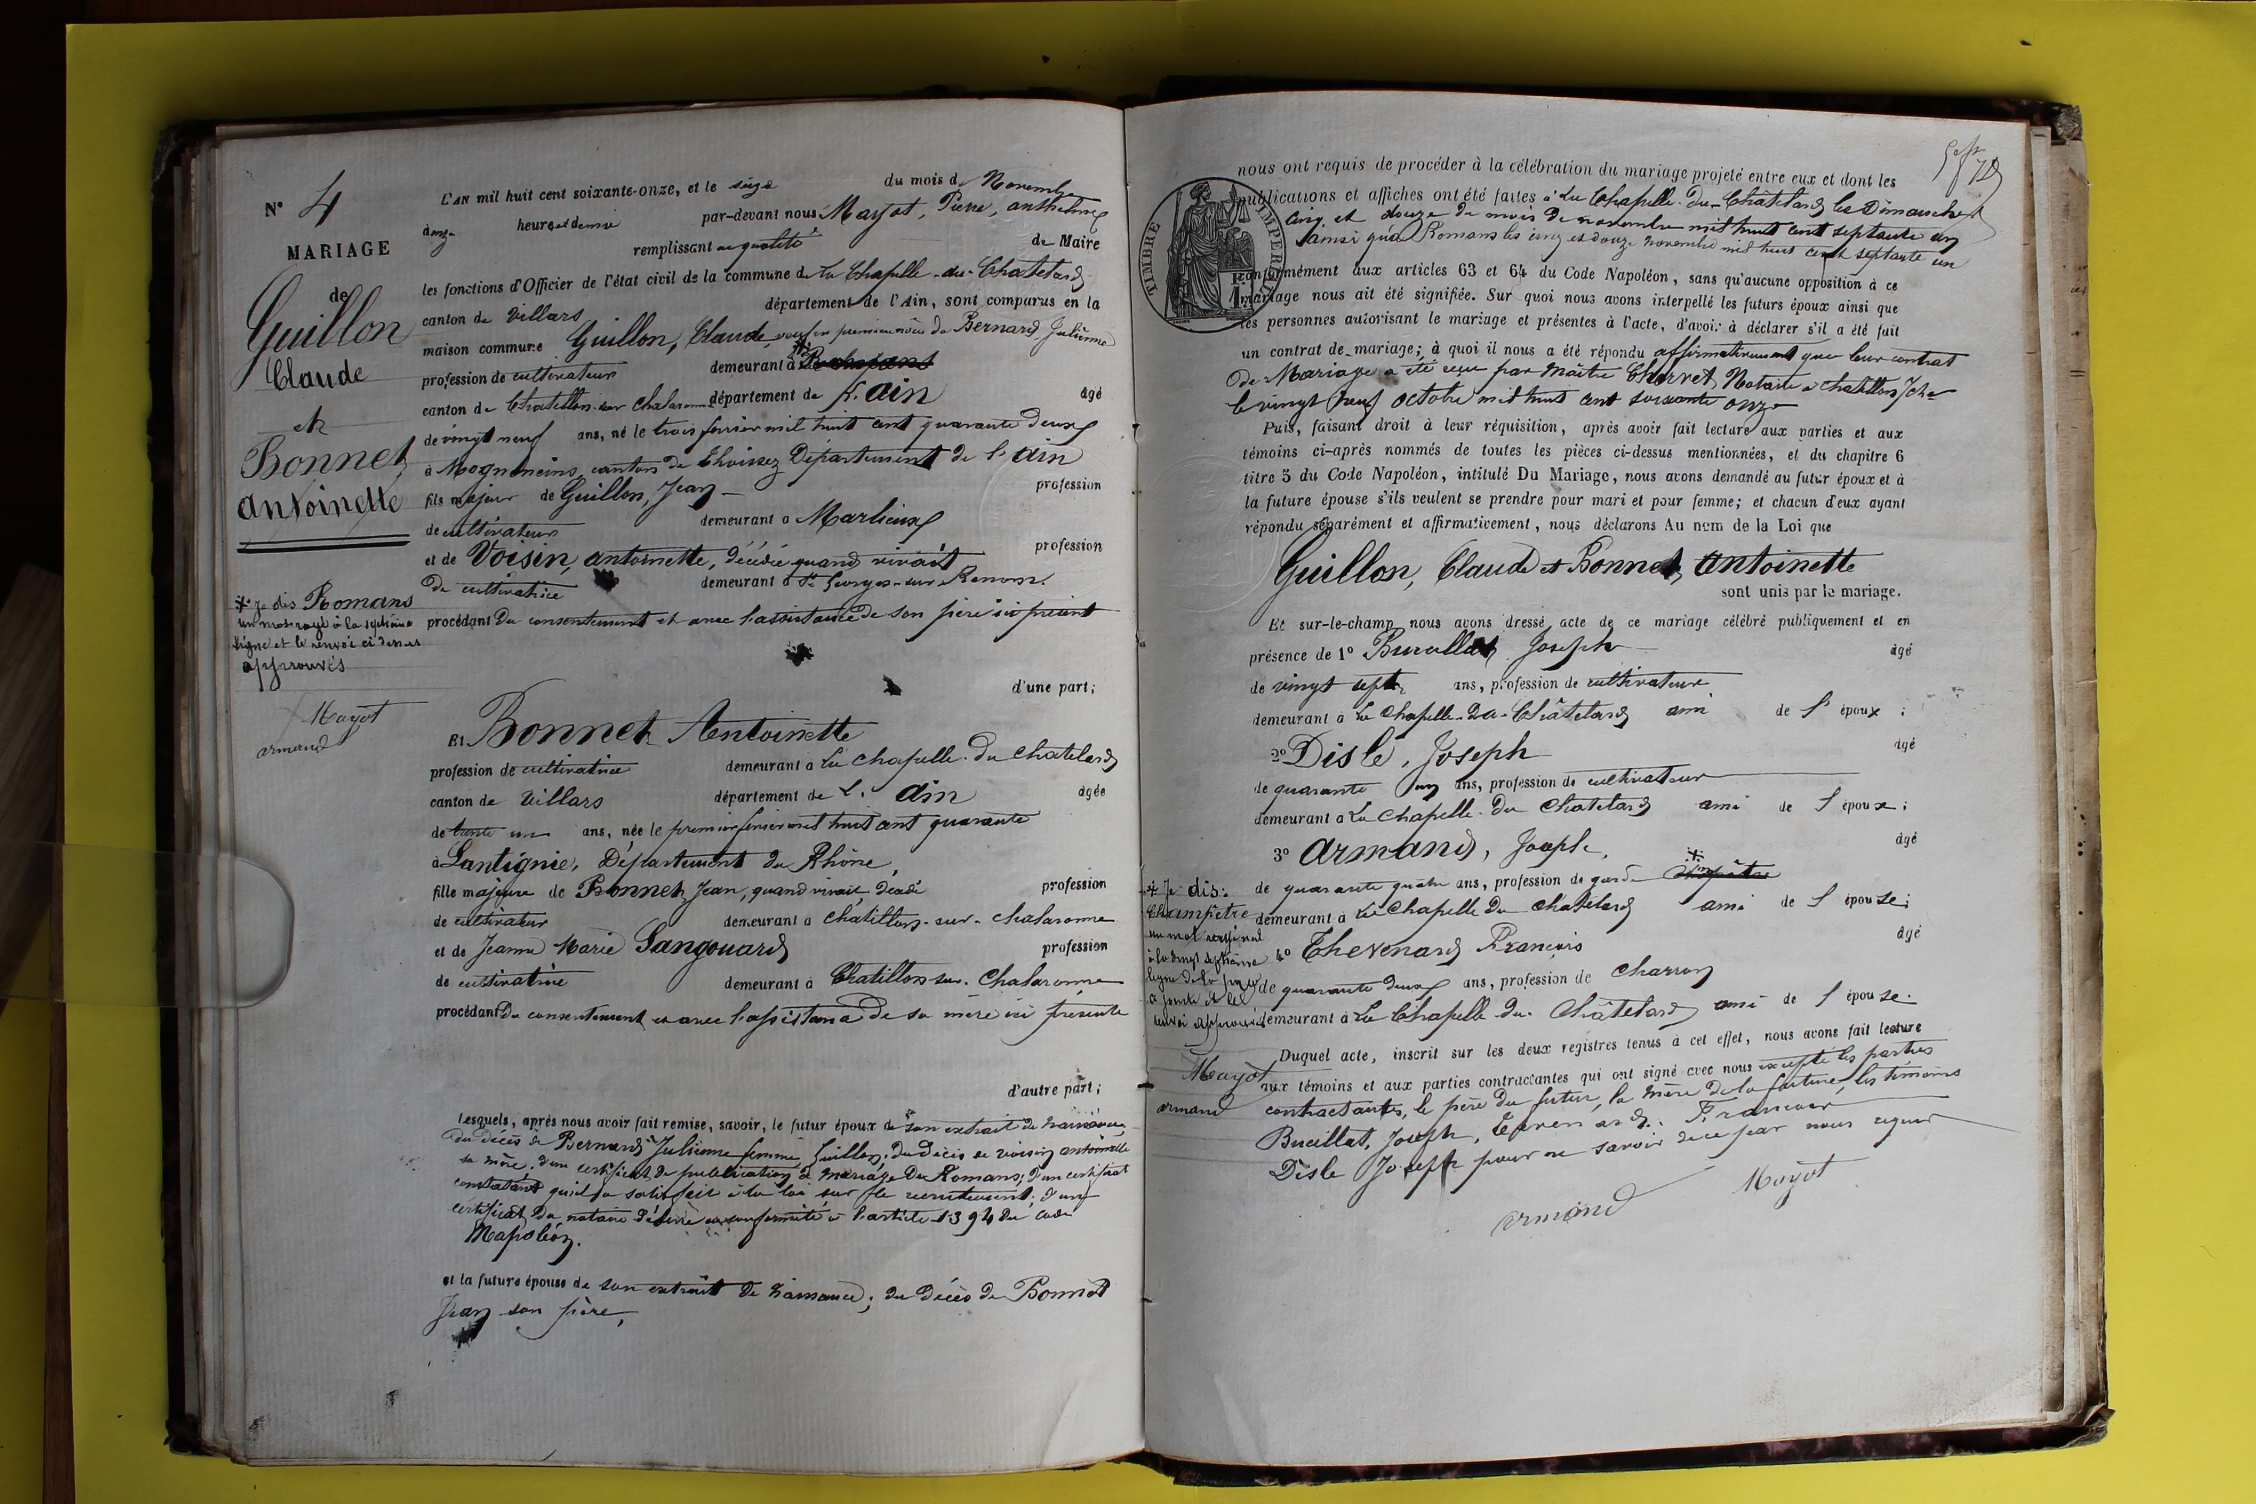 N° 4
MARIAGE
de
Guillon
Claude
et
Bonnet
Antoinette
* Je dis Romans
un mot rayé à la septième
ligne et le renvoi ci dessus
approuvés
Mayot
armand
L'AN mil huit cent soixante-onze, et le seize du mois de Novembre
onze heures et demie par-devant nous Mayot, Pierre, anthelme
remplissant en qualité de Maire
les fonctions d'Officier de l'état civil de la commune de La Chapelle-du-Chatelard
canton de Villars département de l'Ain, sont comparus en la
maison commune Guillon, Claude, veuf en premières nôces de Bernard Julienne
profession de cultivateur demeurant à *
canton de Chatillon-sur Chalaronne département de l'ain âgé
de vingt neuf ans, né le trois février mil huit cent quarante deux
à Mogneneins canton de Thoissey Département de l'ain
fils majeur de Guillon, Jean profession
de cultivateur demeurant à Marlieux
et de Voisin, antoinette, décédée quand vivait profession
de cultivatrice demeurant à St Georges-sur Renom.
procédant du consentement et avec l'assistance de son père ici présent
d'une part;
Et Bonnet Antoinette
profession de cultivatrice demeurant à La chapelle-du Chatelard
canton de Villars département de l'ain âgée
de trente un ans, née le premier février mil huit cent quarante
à Lantignié, Département du Rhône,
fille majeure de Bonnet Jean, quand vivait, décédé profession
de cultivateur demeurant à Châtillon-sur-Chalaronne
et de Jeanne Marie Sangouard profession
de cultivatrice demeurant à Chatillon-sur-Chalaronne
procédant du consentement et avec l'assistance de sa mère ici présente
d'autre part;
Lesquels, après nous avoir fait remise, savoir, le futur époux de son extrait de naissance,
du décès de Bernard Julienne femme Guillon; du décès de voisin antoinette
sa mère, d'un certificat de publication de mariage de Romans; d'un certificat
constatant qu'il a satisfait à la loi sur le recrutement; d'un
certificat du notaire délivré en conformité à l'article 1394 du code
Napoléon.
et la future épouse de son extrait de naissance; du décès de Bonnet
Jean son père,
TIMBRE IMPERIAL
nous ont requis de procéder à la célébration du mariage projeté entre eux et dont les
publications et affiches ont été faites à La Chapelle-du-Châtelard les Dimanches
cinq et douze du mois de novembre mil huit cent septante un
ainsi qu'à Romans les cinq et douze novembre mil huit cent septante un
conformément aux articles 63 et 64 du Code Napoléon, sans qu'aucune opposition à ce
mariage nous ait été signifiée. Sur quoi nous avons interpellé les futurs époux ainsi que
les personnes autorisant le mariage et présentes à l'acte, d'avoir à déclarer s'il a été fait
un contrat de mariage; à quoi il nous a été répondu affirmativement que leur contrat
de Mariage a été reçu par maître Charvet, Notaire à Chatillon
le vingt neuf octobre mil huit cent soixante onze
Puis, faisant droit à leur réquisition, après avoir fait lecture aux parties et aux
témoins ci-après nommés de toutes les pièces ci-dessus mentionnées, et du chapitre 6
titre 5 du Code Napoléon, intitulé Du Mariage, nous avons demandé au futur époux et à
la future épouse s'ils veulent se prendre pour mari et pour femme; et chacun d'eux ayant
répondu séparément et affirmativement, nous déclarons Au nom de la Loi que
Guillon, Claude et Bonnet, Antoinette
sont unis par le mariage.
Et sur-le-champ nous avons dressé acte de ce mariage célébré publiquement et en
présence de 1° Burillat Joseph âgé
de vingt sept ans, profession de cultivateur
demeurant à La Chapelle-du-Châtelard ami de l'époux;
2° Disle, Joseph âgé
de quarante un ans, profession de cultivateur
demeurant à La Chapelle-du Chatelard ami de l'époux;
3° Armand, Joseph, âgé
de quarante quatre ans, profession de garde * champêtre
demeurant à La Chapelle du Chatelard ami de l'épouse;
4° Thevenard François âgé
de quarante deux ans, profession de charron
demeurant à La Chapelle-du-Châtelard ami de l'épouse.
* Je dis:
Champêtre
un mot rayé nul
à la vingt septième
ligne de la page
renvoi approuvés
Mayot
armand
Duquel acte, inscrit sur les deux registres tenus à cet effet, nous avons fait lecture
aux témoins et aux parties contractantes qui ont signé avec nous excepté les parties
contractantes, le père du futur, la mère de la future, les témoins
Burillat, Joseph, Tevenard. Francois
Disle Joseph pour ne savoir de ce par nous requis
armand Mayot